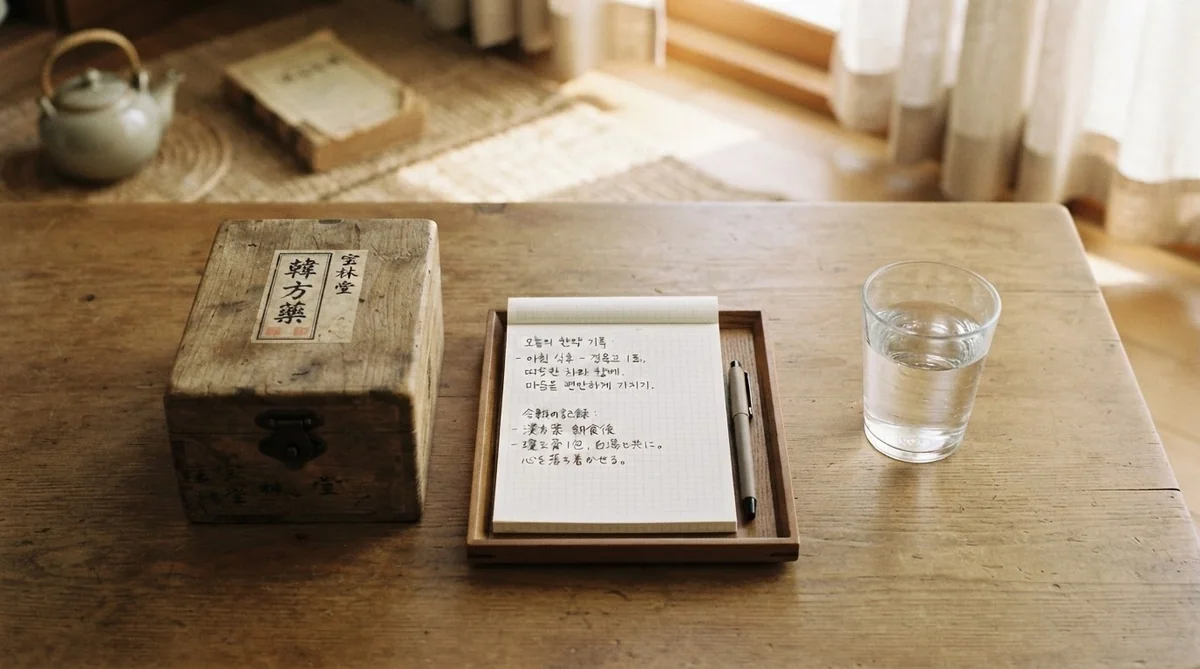 韓方藥
宝林堂
오늘의 한약 기록:
- 아침 식후 - 경옥고 1포,
따뜻한 차와 함께.
마음을 편안하게 가지기.
の記録:
- 漢方薬 朝食後
- 瓊玉膏1包, 白湯と共に。
心を落ち着かせる。
林 堂